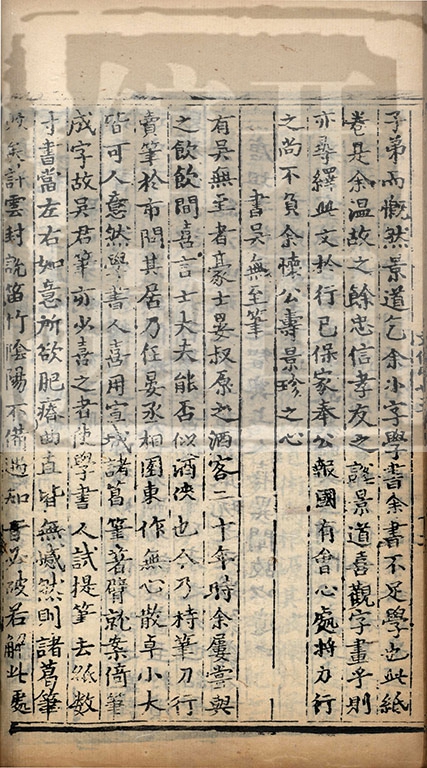 子弟而慨然景道乞余小字學書余書不足學也此紙
卷是余温故之餘忠信孝友之説景道喜觀字畫乎則
亦尋繹此文於行已保家奉公報國有會心處持力行
之尚不負余懷公壽景珍之心
書吳無至筆
有吳無至者豪士晏叔原之酒客二十年時余屢嘗與
之飲飲間喜言士大夫能否似酒俠也今乃持筆刀行
賣筆於市問其居乃在晏丞相園東作無心散卓小大
皆可人意然學書人喜用宣城諸葛筆著臂就案倚筆
成字故吳君筆亦少喜之者使學書人試提筆去紙數
寸書當左右如意所欲肥瘠曲直皆無憾然則諸葛筆
敗矣計雲封説笛竹陰陽不備遇知音必破若解此處